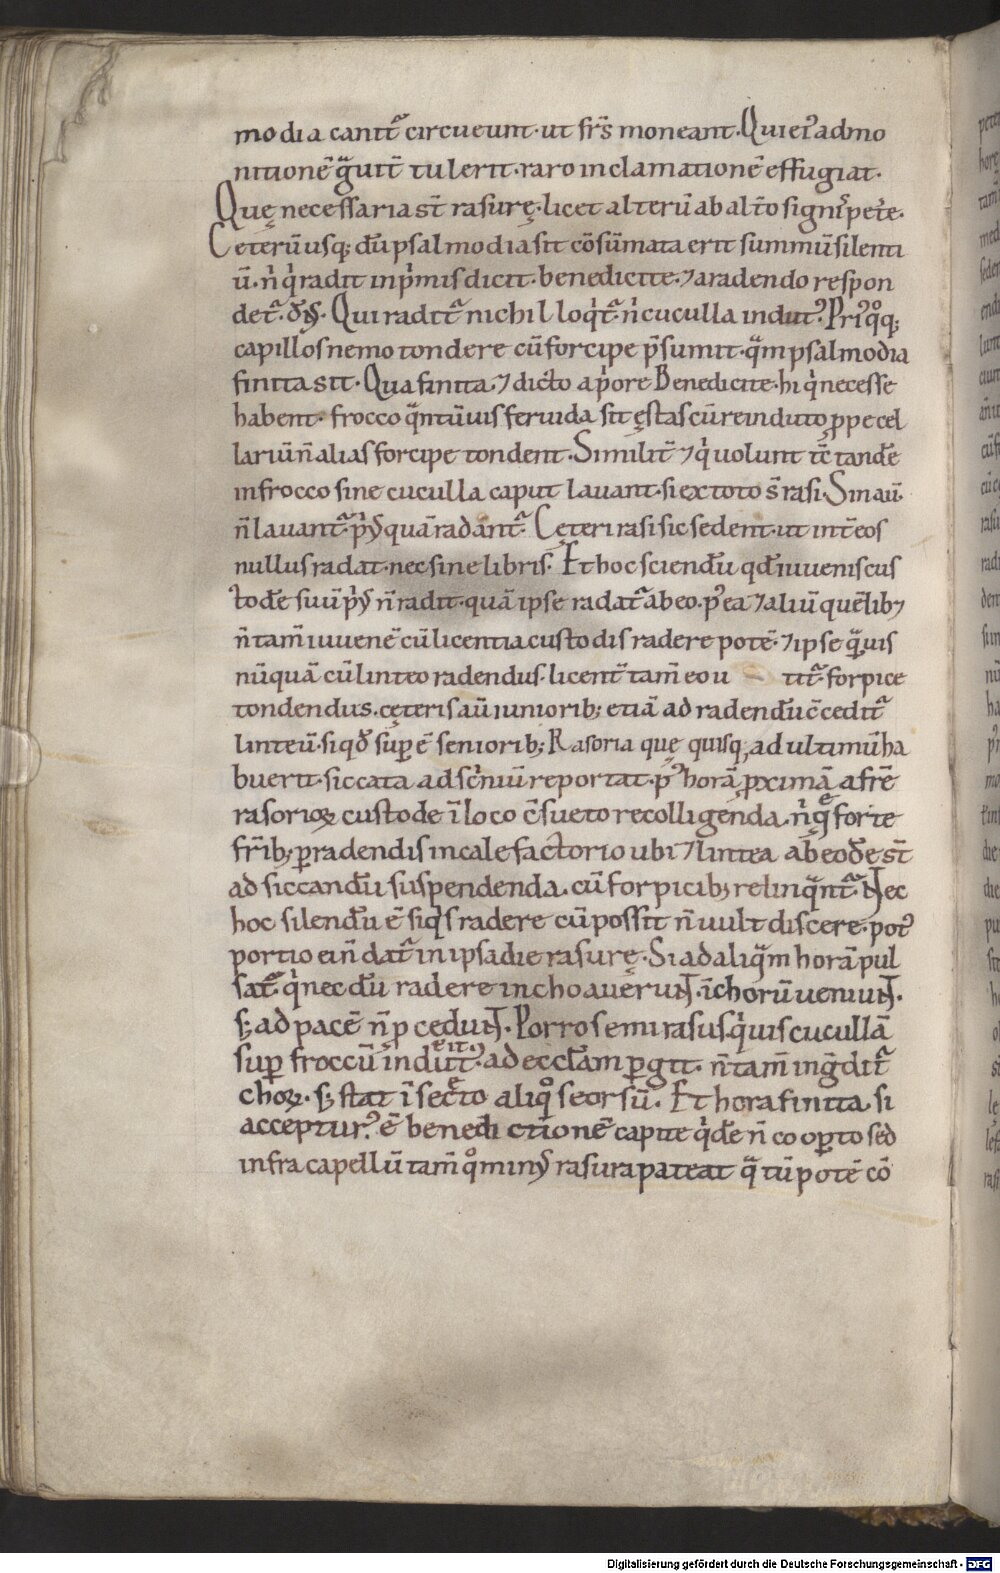 modia cantit᷒ circueunt· ut fr̄s moneant. Qui ei᷒ admo
nitionē g̃uit̄ tulerit· raro inclamationē effugiat·
Quę necessaria st̄ rasurę· licet alterū ab alt̄o signi᷒ pet̄e.
Ceterū usq; dū psalmodia sit cōsūmata erit summū silenti
ū. n̓ q̓ radit inp̓mis dicit· benedicite· ⁊ a radendo respon
det᷒. dn̄s. Qui radit᷒ nichil loq̓t᷒ n̓ cuculla indut᷒. Pri᷒ qͦq;
capillos nemo tondere cū forcipe p̄sumit· q̃m psalmodia
finita sit· Qua finita, ⁊ dicto a p̓ore Benedicite· hi q̓ necesse
habent· frocco q̃ntūuis feruida sit ęstas cū reinduto ꝓpe cel
lariū n̄ alias forcipe tondent. Similit̄ ⁊ q̓ uolunt tc̄ tandē
in frocco sine cuculla caput lauant· si ex toto s̄ rasi· Sin aū·
n̄ lauant᷒ p̓us quā radant᷒. Cęteri rasi sic sedent· ut int̄ eos
nullus radat· nec sine libris· Et hoc sciendū qd̄ iuueniscus
todē suū p̓us n̄ radit· quā ipse radat᷒ ab eo· p᷒ ea ⁊ aliū quēlib;
n̄ tam̄ iuuenē cū licentia custodis radere potē· ⁊ ipse q̃uis
nūquā cū linteo radendus· licent̄ tam̄ eo u tit᷒ forpice
tondendus. cęteris aū iuniorib; etiā ad radendū c̄cedit᷒
linteū· si qd̄ sup̄ ē seniorib; Rasoria quę quisq; ad ultimū ha
buerit· siccata ad sc̓niū reportat· p᷒ horā ꝓximā a fr̄e
rasorioꝝ custode ī loco c̄sueto recolligenda. n̓ q̨ forte
fr̄ib; ꝑradendis in calefactorio ubi ⁊ lintea ab eodē st̄
ad siccandū suspendenda. cū forpicib; relinq̃nt᷒. Nec
hoc silendū ē si q̓s radere cū possit n̄ uult discere· pot᷒
portio ei n̄ dat᷒ in ipsa die rasurę· Si ad aliq̃m horā pul
sat᷒ q̓ necdū radere inchoauerunt. ī chorū ueniunt.
s; ad pacē n̄ ꝓcedunt· Porro semirasus q̓uis cucullā
suꝑ froccū induit᷒. ad ecclam̄ ꝑgit· n̄ tam̄ ing̃dit᷒
choꝝ· s; stat ī secreto aliqͦ seorsū· Et hora finita si
acceptur᷒ ē benedictionē capite q̓dē n̄ cooꝑto sed
infra capellū tam̄ qͦ min᷒ rasura pateat q̃ tū potē cō
Digitalisierung gefördert durch die Deutsche Forschungsgemeinschaft - DFG